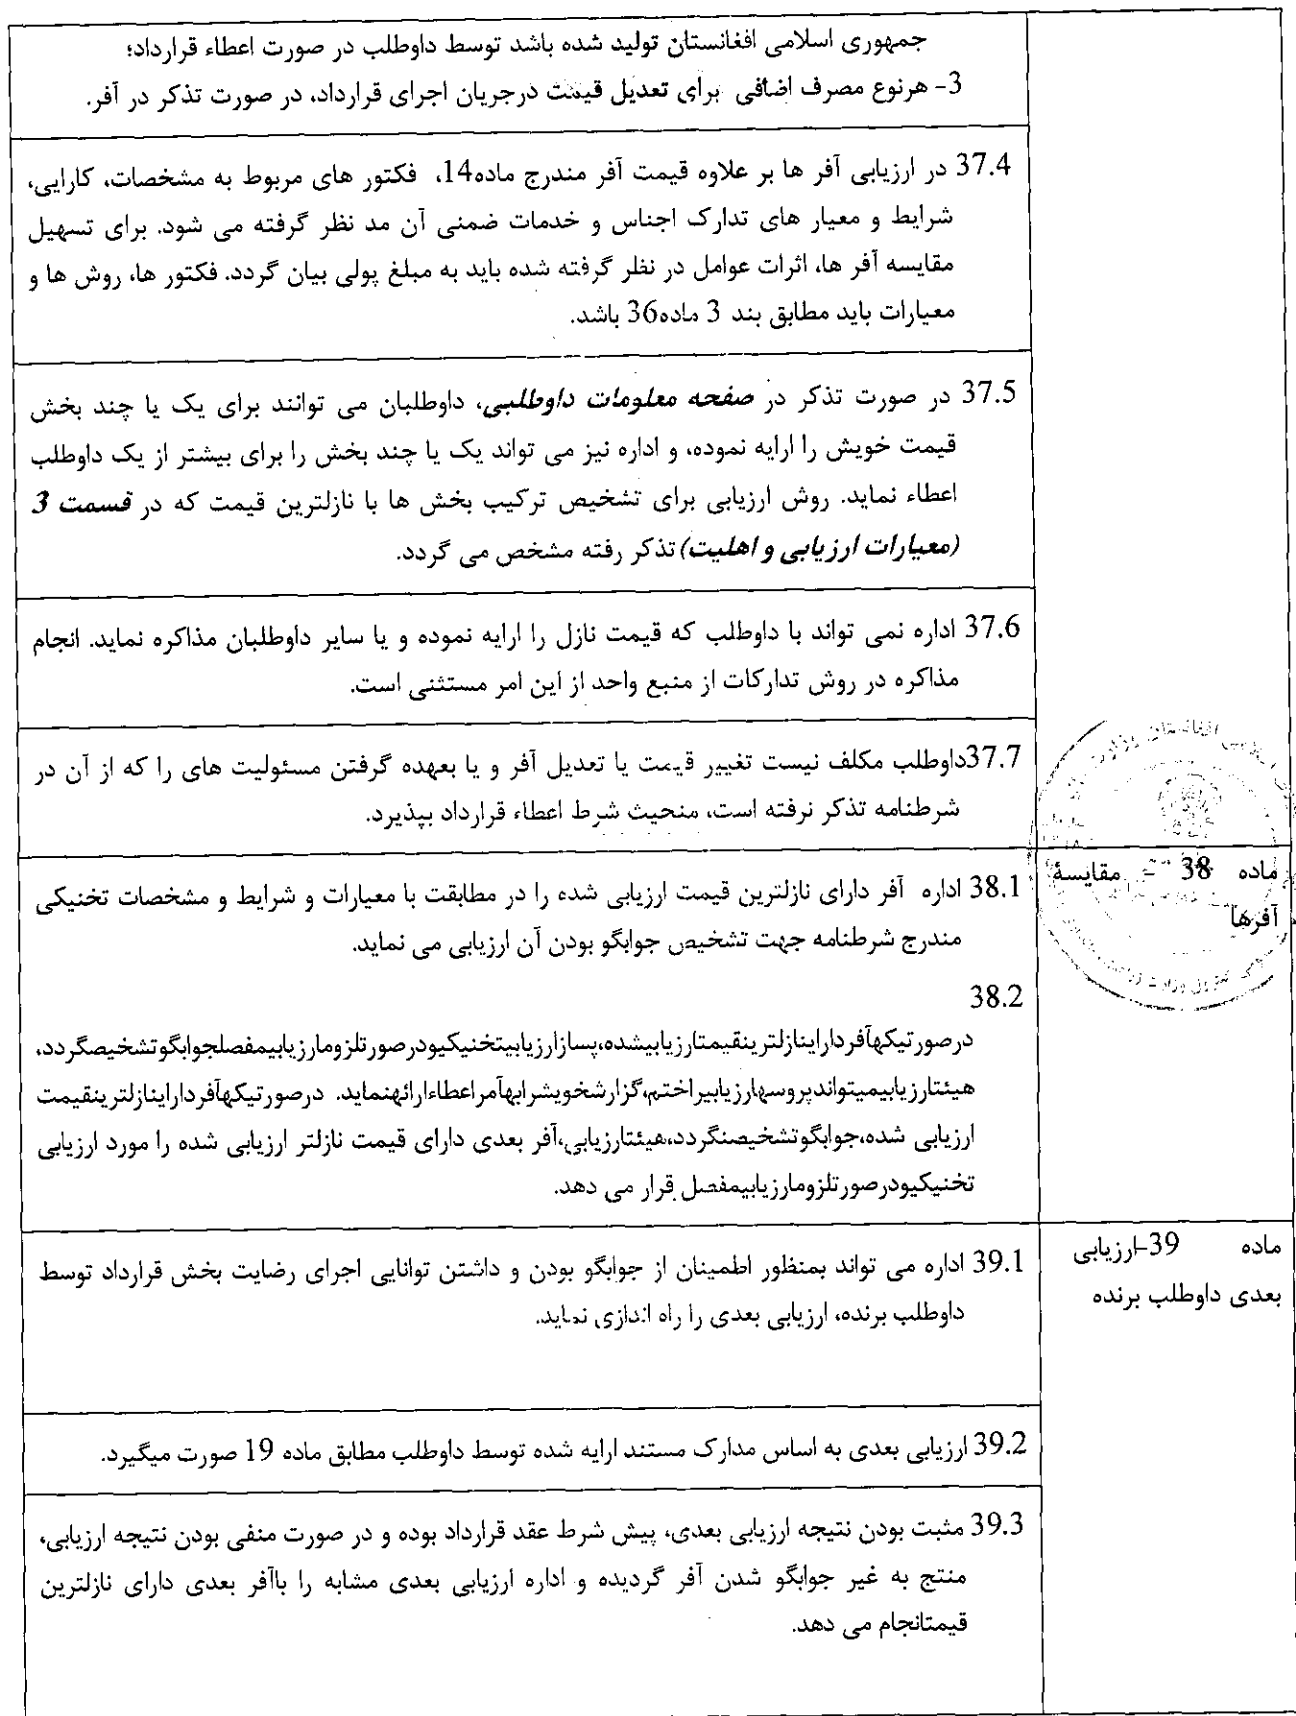 جمهوری اسلامی افغانستان تولید شده باشد توسط داوطلب در صورت اعطاء قرارداد؛
3- هرنوع مصرف اضافی برای تعدیل قیمت درجریان اجرای قرارداد، در صورت تذکر در آفر.
37.4 در ارزیابی آفر ها بر علاوه قیمت آفر مندرج ماده14، فکتور های مربوط به مشخصات، کارایی،
شرایط و معیار های تدارک اجناس و خدمات ضمنی آن مد نظر گرفته می شود. برای تسهیل
مقایسه آفر ها، اثرات عوامل در نظر گرفته شده باید به مبلغ پولی بیان گردد. فکتور ها، روش ها و
معیارات باید مطابق بند 3 ماده36 باشد.
37.5 در صورت تذکر در صفحه معلومات داوطلبی، داوطلبان می توانند برای یک یا چند بخش
قیمت خویش را ارایه نموده، و اداره نیز می تواند یک یا چند بخش را برای بیشتر از یک داوطلب
اعطاء نماید. روش ارزیابی برای تشخیص ترکیب بخش ها با نازلترین قیمت که در قسمت 3
(معیارات ارزیابی و اهلیت) تذکر رفته مشخص می گردد.
37.6 اداره نمی تواند با داوطلب که قیمت نازل را ارایه نموده و یا سایر داوطلبان مذاکره نماید. انجام
مذاکره در روش تدارکات از منبع واحد از این امر مستثنی است.
37.7داوطلب مکلف نیست تغییر قیمت یا تعدیل آفر و یا بعهده گرفتن مسئولیت های را که از آن در
شرطنامه تذکر نرفته است، منحیث شرط اعطاء قرارداد بپذیرد.
ماده 38 - مقایسۀ
آفرها
38.1 اداره آفر دارای نازلترین قیمت ارزیابی شده را در مطابقت با معیارات و شرایط و مشخصات تخنیکی
مندرج شرطنامه جهت تشخیص جوابگو بودن آن ارزیابی می نماید.
38.2
درصورتیکهآفردارایناز‌لترینقیمتارزیابیشده،پسازارزیابیتخنیکیودرصورتلزومارزیابیمفصلجوابگوتشخیصگردد،
هیئتارزیابیمیتواندپروسهارزیابیراختم،گزارشخویشرابهآمراعطاءارائهنماید. درصورتیکهآفردارایناز‌لترینقیمت
ارزیابی شده،جوابگوتشخیصنگردد،هیئتارزیابی،آفر بعدی دارای قیمت نازلتر ارزیابی شده را مورد ارزیابی
تخنیکیودرصورتلزومارزیابیمفصل قرار می دهد.
ماده 39-ارزیابی
بعدی داوطلب برنده
39.1 اداره می تواند بمنظور اطمینان از جوابگو بودن و داشتن توانایی اجرای رضایت بخش قرارداد توسط
داوطلب برنده، ارزیابی بعدی را راه اندازی نماید.
39.2 ارزیابی بعدی به اساس مدارک مستند ارایه شده توسط داوطلب مطابق ماده 19 صورت میگیرد.
39.3 مثبت بودن نتیجه ارزیابی بعدی، پیش شرط عقد قرارداد بوده و در صورت منفی بودن نتیجه ارزیابی،
منتج به غیر جوابگو شدن آفر گردیده و اداره ارزیابی بعدی مشابه را باآفر بعدی دارای نازلترین
قیمتانجام می دهد.